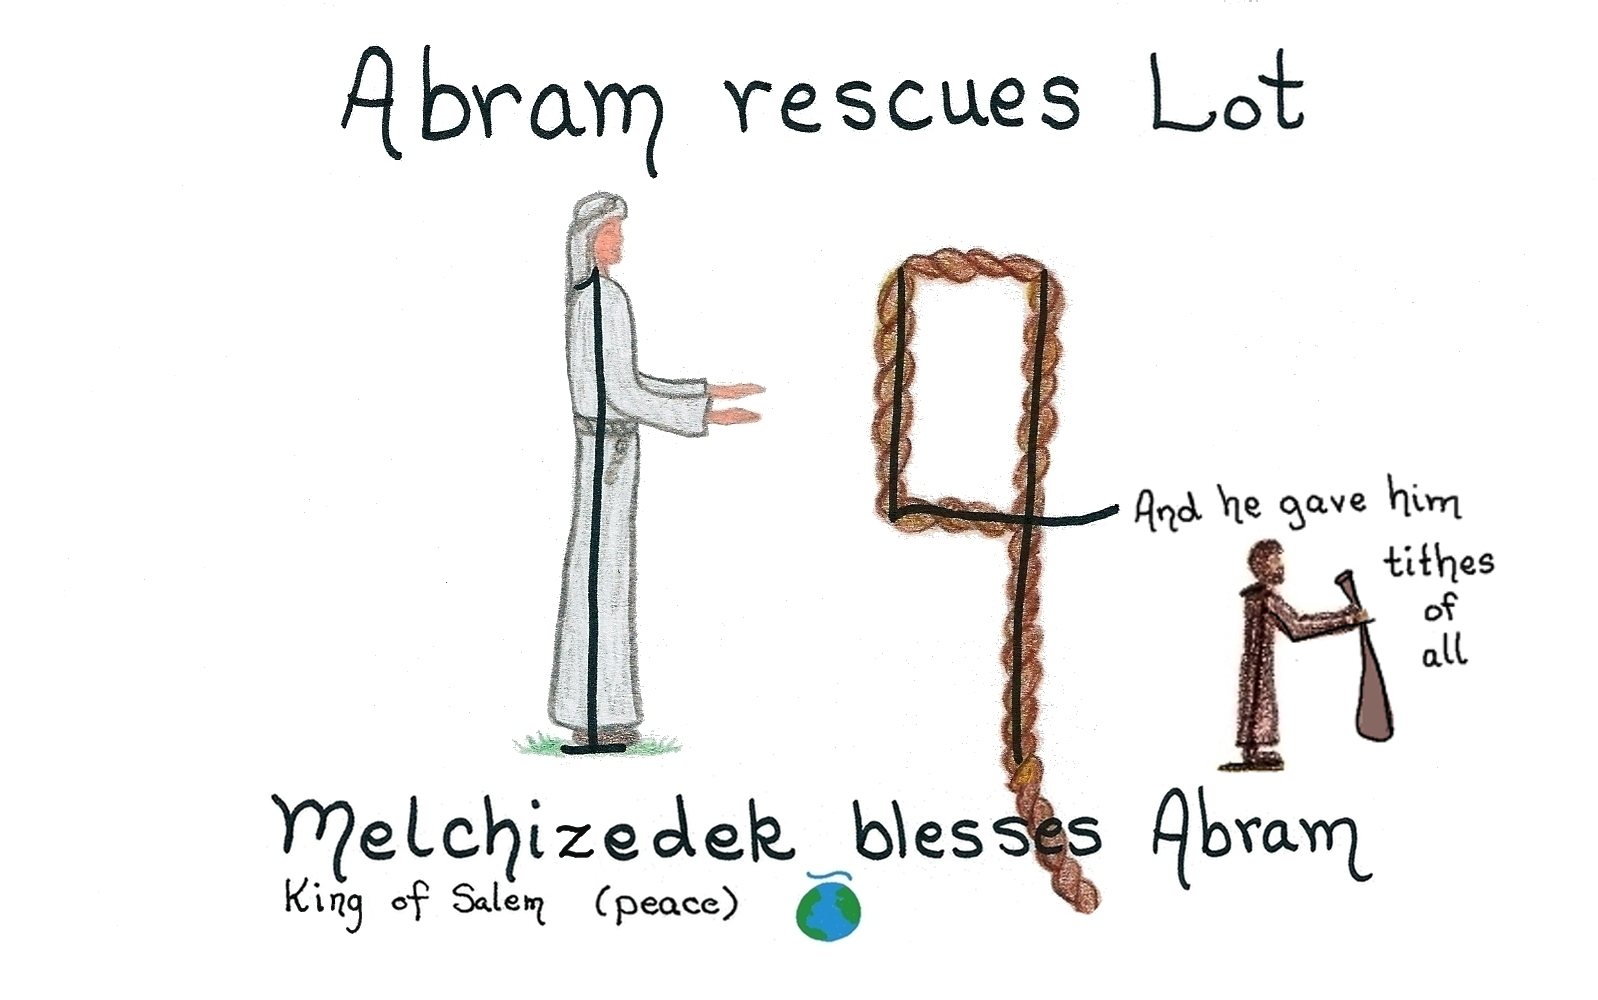 Abram rescues Lot
14
And he gave him
tithes
of
all
Melchizedek blesses Abram
King of Salem (peace)